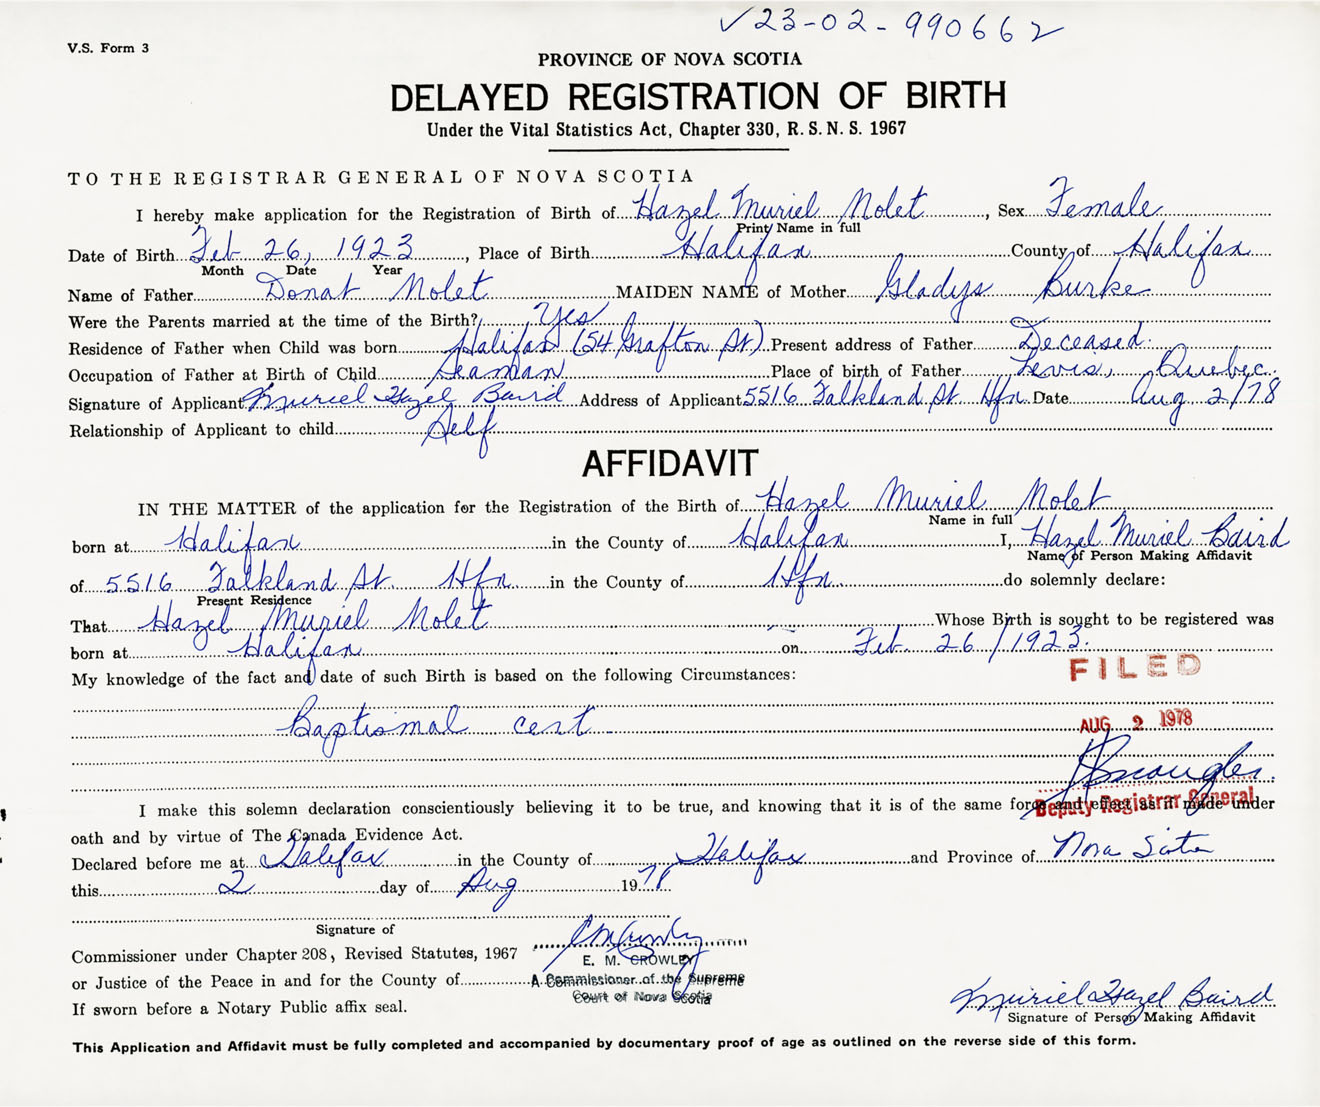 ✓ 23-02-990662
V.S. Form 3
PROVINCE OF NOVA SCOTIA
DELAYED REGISTRATION OF BIRTH
Under the Vital Statistics Act, Chapter 330, R.S.N.S. 1967
TO THE REGISTRAR GENERAL OF NOVA SCOTIA
I hereby make application for the Registration of Birth of Hazel Muriel Nolet, Sex Female
Print Name in full
Date of Birth Feb 26, 1923, Place of Birth Halifax County of Halifax
Month Date Year
Name of Father Donat Nolet MAIDEN NAME of Mother Gladys Burke
Were the Parents married at the time of the Birth? Yes
Residence of Father when Child was born Halifax (54 Grafton St) Present address of Father Deceased.
Occupation of Father at Birth of Child Seaman Place of birth of Father Levis, Quebec.
Signature of Applicant Muriel Hazel Baird Address of Applicant 5516 Falkland St. Hfx. Date Aug 2/78
Relationship of Applicant to child Self
AFFIDAVIT
IN THE MATTER of the application for the Registration of the Birth of Hazel Muriel Nolet
Name in full
born at Halifax in the County of Halifax I, Hazel Muriel Baird
Name of Person Making Affidavit
of 5516 Falkland St. Hfx in the County of Hfx do solemnly declare:
Present Residence
That Hazel Muriel Nolet Whose Birth is sought to be registered was
born at Halifax on Feb. 26/1923.
My knowledge of the fact and date of such Birth is based on the following Circumstances:
FILED
Baptismal cert.
AUG 2 1978
Deputy Registrar General
I make this solemn declaration conscientiously believing it to be true, and knowing that it is of the same force and effect as if made under
oath and by virtue of The Canada Evidence Act.
Declared before me at Halifax in the County of Halifax and Province of Nova Scotia
this 2 day of Aug 1978
Signature of
Commissioner under Chapter 208, Revised Statutes, 1967
E. M. CROWLEY
or Justice of the Peace in and for the County of
A Commissioner of the Supreme
Court of Nova Scotia
If sworn before a Notary Public affix seal.
Muriel Hazel Baird
Signature of Person Making Affidavit
This Application and Affidavit must be fully completed and accompanied by documentary proof of age as outlined on the reverse side of this form.